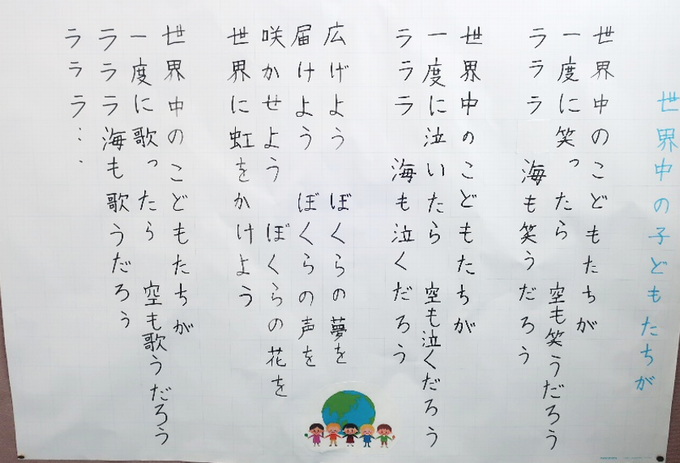 世界中の子どもたちが
世界中のこどもたちが
一度に笑ったら 空も笑うだろう
ラララ 海も笑うだろう
世界中のこどもたちが
一度に泣いたら 空も泣くだろう
ラララ 海も泣くだろう
広げよう ぼくらの夢を
届けよう ぼくらの声を
咲かせよう ぼくらの花を
世界に虹をかけよう
世界中のこどもたちが
一度に歌ったら 空も歌うだろう
ラララ海も歌うだろう
ラララ・・・